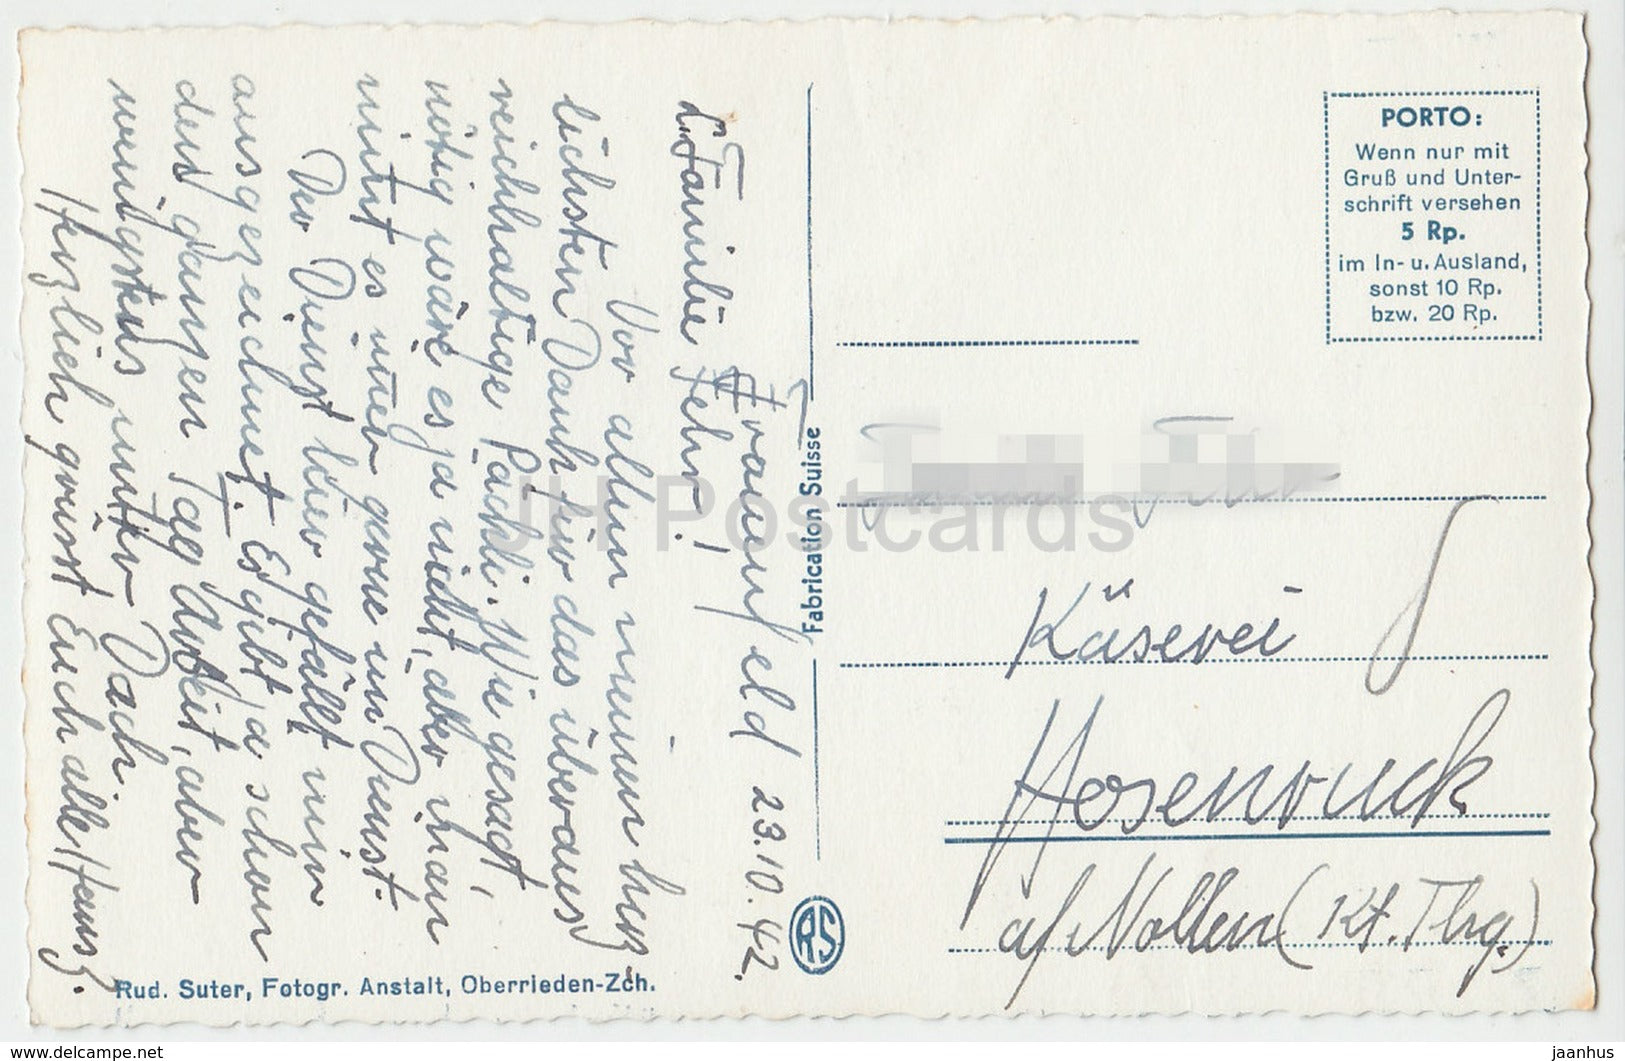 Frauenfeld 23.10.42.
L. Familie Fehr!
Vor allem meinen herz-
lichsten Dank für das überaus
reichhaltige Päckli. Wie gesagt,
nötig wäre es ja nicht, aber man
nimt es imer gerne im Dienst.
Der Dienst hier gefällt mir
ausgezeichnet. Es gibt ja schon
den ganzen Tag Arbeit, aber
wenigstens unter Dach.
Herzlich grüsst Euch alle Hans F.
Rud. Suter, Fotogr. Anstalt, Oberrieden-Zch.
Fabrication Suisse
RS
PORTO:
Wenn nur mit
Gruß und Unter-
schrift versehen
5 Rp.
im In- u. Ausland,
sonst 10 Rp.
bzw. 20 Rp.
Käserei
Hosenruck
a/ Nollen (Kt. Thrg.)
JH Postcards
akpool.co.uk / delcampe.net
jaanhus